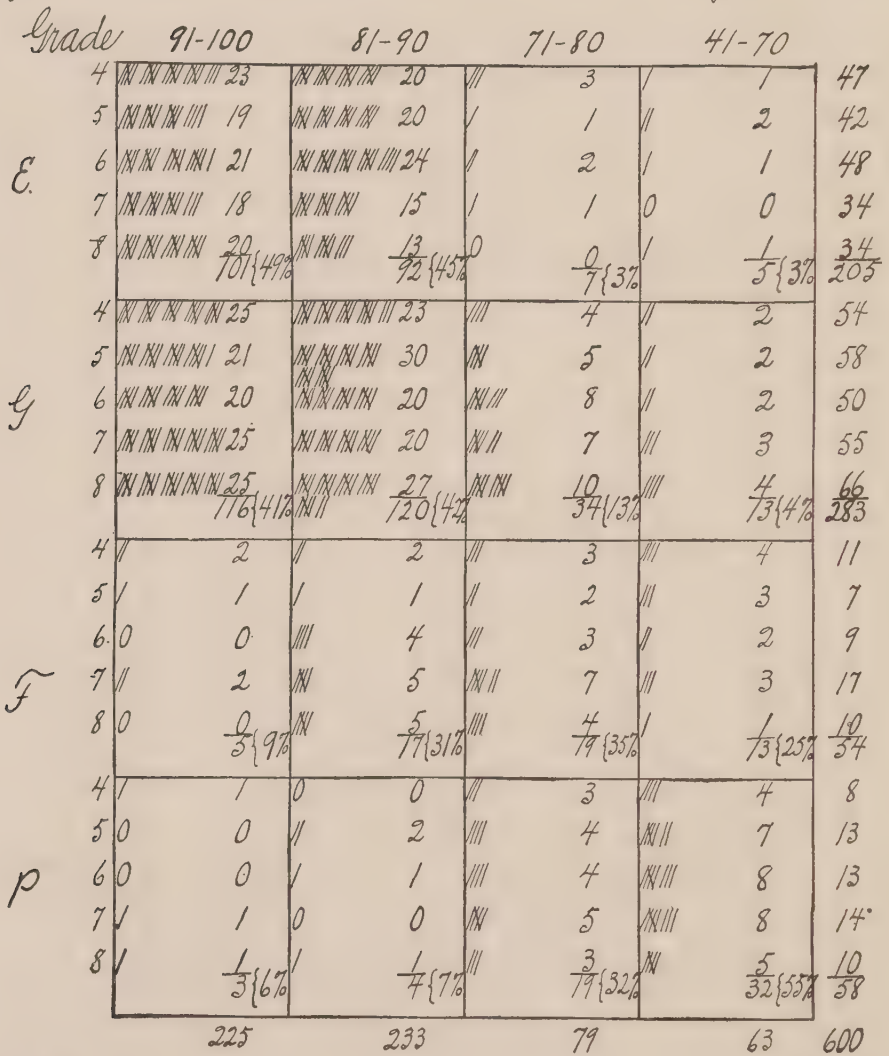 Grade 91-100 81-90 71-80 41-70
4 23 20 3 1 47
5 19 20 1 2 42
E. 6 21 24 2 1 48
7 18 15 1 0 0 34
8 20 13 0 0 1 34
101{49% 92{45% 7{3% 5{3% 205
4 25 23 4 2 54
5 21 30 5 2 58
G 6 20 20 8 2 50
7 25 20 7 3 55
8 25 27 10 4 66
116{41% 120{42% 34{13% 13{4% 283
4 2 2 3 4 11
5 1 1 2 3 7
6. 0 0 4 3 2 9
F 7 2 5 7 3 17
8 0 0 5 4 1 10
5{9% 17{31% 19{35% 13{25% 54
4 1 0 0 3 4 8
5 0 0 2 4 7 13
P 6 0 0 1 4 8 13
7 1 0 0 5 8 14
8 1 1 3 5 10
3{6% 4{7% 19{32% 32{55% 58
225 233 79 63 600